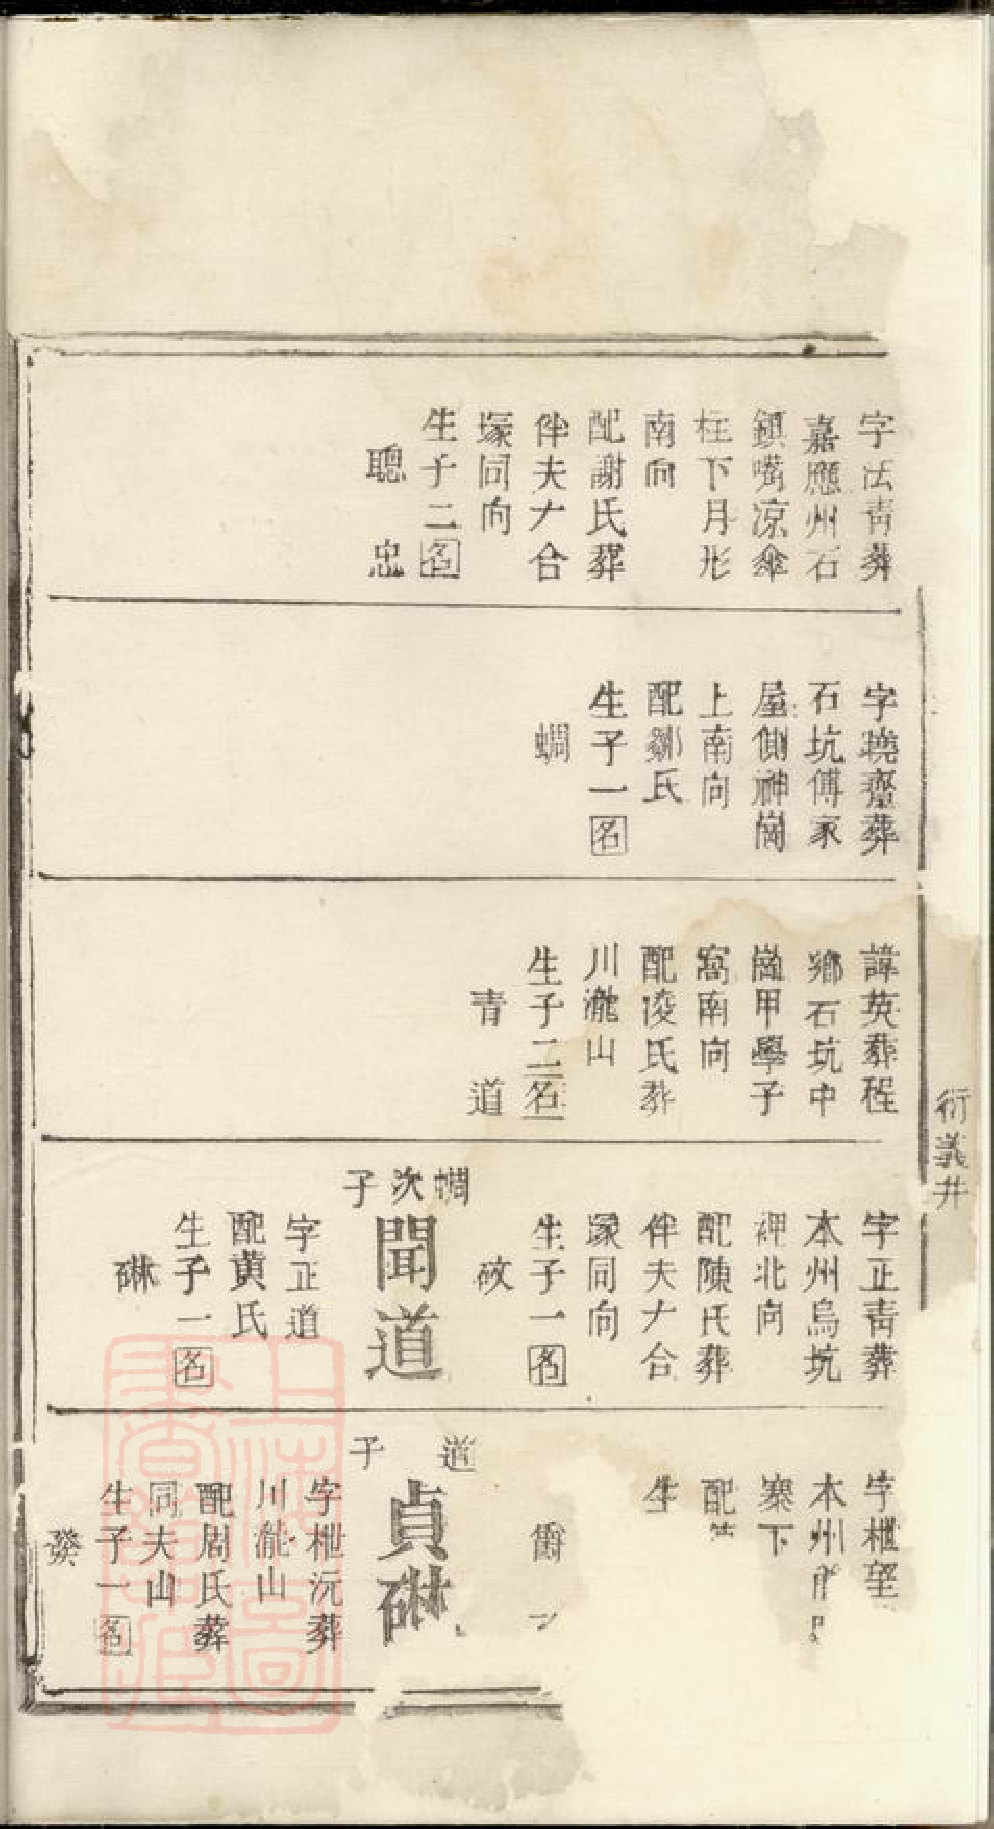 字法青葬
嘉應州石
鎮嘴凉傘
柱下月形
南向
配謝氏葬
伴夫大合
塚同向
生子二名
聰 忠
字曉齋葬
石坑傅家
屋側神崗
上南向
配鄒氏
生子一名
蜩
諱英葬程
鄉石坑中
崗甲學子
窩南向
配凌氏葬
川瀧山
生子二名
青 道
字正青葬
本州烏坑
裡北向
配陳氏葬
伴夫大合
塚同向
生子一名
蜩次子
聞道
字正道
配黄氏
生子一名
碄
字 望
本州
寨下
配
生
爵
道 子
貞碄
字 沅葬
川瀧山
配周氏葬
同夫山
生子一名
發
衍義井